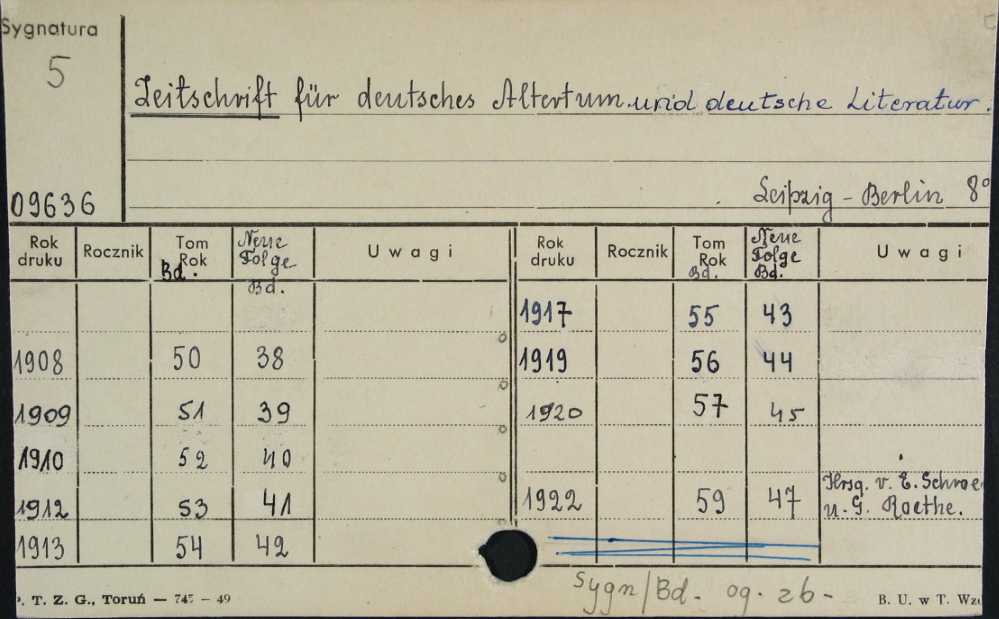 Sygnatura
5
Zeitschrift für deutsches Altertum und deutsche Literatur.
Leipzig - Berlin 8°
09636
Rok druku Rocznik Tom Rok Bd. Neue Folge Bd. Uwagi Rok druku Rocznik Tom Rok Bd. Neue Folge Bd. Uwagi
1917 55 43
1908 50 38 1919 56 44
1909 51 39 1920 57 45
1910 52 40
1912 53 41 1922 59 47 Hrsg. v. E. Schroe u. G. Roethe.
1913 54 42
Sygn/Bd. og. zb-
. T. Z. G., Toruń — 745 — 49 B. U. w T. Wz